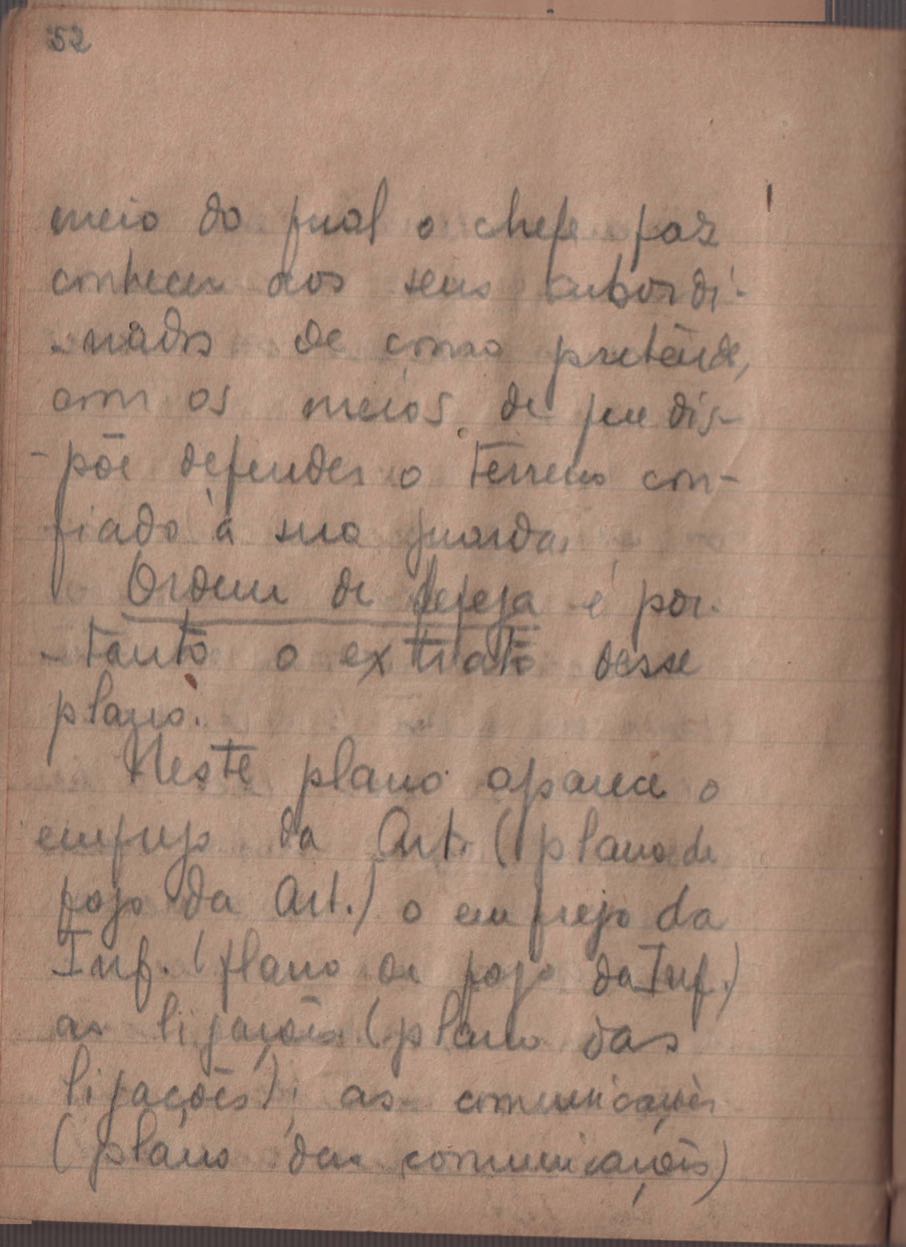 52
meio do qual o chefe faz
conhecer aos seus subordi-
-nados de como pretende,
com os meios de que dis-
-põe defender o terreno con-
fiado à sua guarda.
Ordem de defeza é por-
-tanto o extrato desse
plano.
Neste plano aparece o
emprego da Art. (plano de
fogo da Art.) o emprego da
Inf. (plano de fogo da Inf.)
as ligações (plano das
ligações); as comunicações
(plano das comunicações)